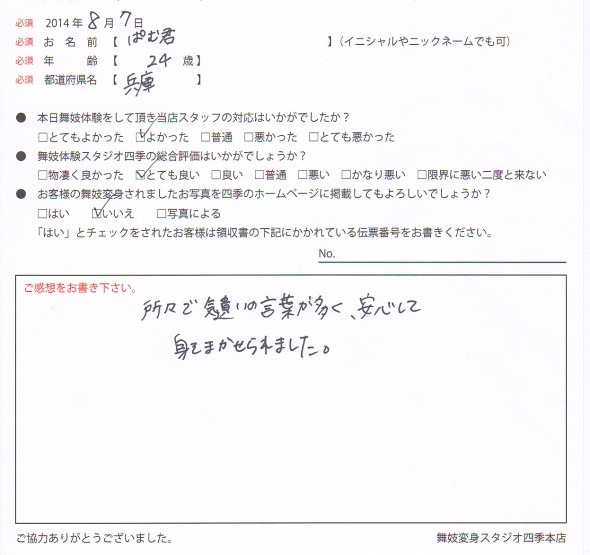 必須 2014 年 8 月 7 日
必須 お 名 前 【 ぱむ君 】（イニシャルやニックネームでも可）
必須 年 齢 【 24 歳】
必須 都道府県名 【 兵庫 】
● 本日舞妓体験をして頂き当店スタッフの対応はいかがでしたか？
□とてもよかった ☑よかった □普通 □悪かった □とても悪かった
● 舞妓体験スタジオ四季の総合評価はいかがでしょうか？
□物凄く良かった ☑とても良い □良い □普通 □悪い □かなり悪い □限界に悪い二度と来ない
● お客様の舞妓変身されましたお写真を四季のホームページに掲載してもよろしいでしょうか？
□はい ☑いいえ □写真による
「はい」とチェックをされたお客様は領収書の下記にかかれている伝票番号をお書きください。
No.
ご感想をお書き下さい。
所々で気遣いの言葉が多く、安心して
身をまかせられました。
ご協力ありがとうございました。 舞妓変身スタジオ四季本店